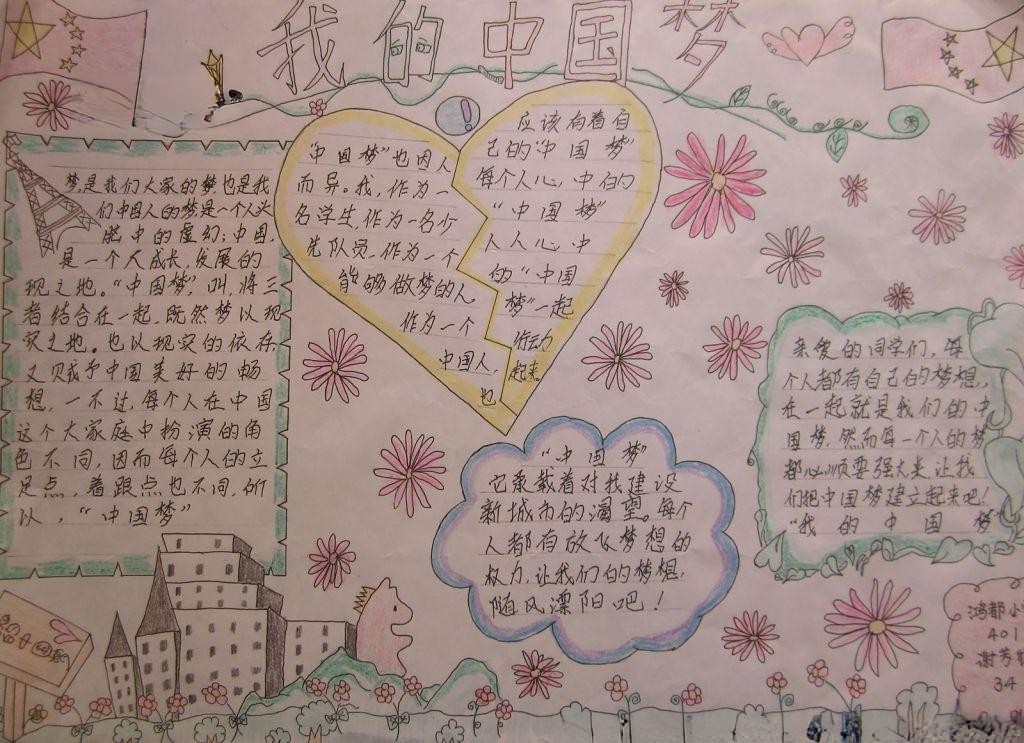 我的中国梦
梦,是我们大家的梦也是我
们中国人的梦是一个人头
脑中的虚幻;中国,
是一个大成长,发展的
现之地。“中国梦”,叫,将三
者结合在一起,既然梦以现
实之地。也以现实的依存
又赋予中国美好的畅
想,一不过,每个人在中国
这个大家庭中扮演的角
色不同,因而每个人的立
足点,着跟点也不同,所
以,“中国梦”
“中国梦”也因人
而异。我,作为一
名学生,作为一名少
先队员,作为一个
能够做梦的人,
作为一个
中国人,
也
应该向着自
己的“中国梦”
每个人心中的
“中国梦”
人人心中
的“中国
梦”一起
行动
起来
“中国梦”
它承载着对我建设
新城市的渴望。每个
人都有放飞梦想的
权力,让我们的梦想,
随风漂阳吧!
亲爱的同学们,每
个人都有自己的梦想,
在一起就是我们的中
国梦,然而每一个人的梦
都必须要强大来,让我
们把中国梦建立起来吧!
“我的中国梦
鸿都小
401
谢芳
34